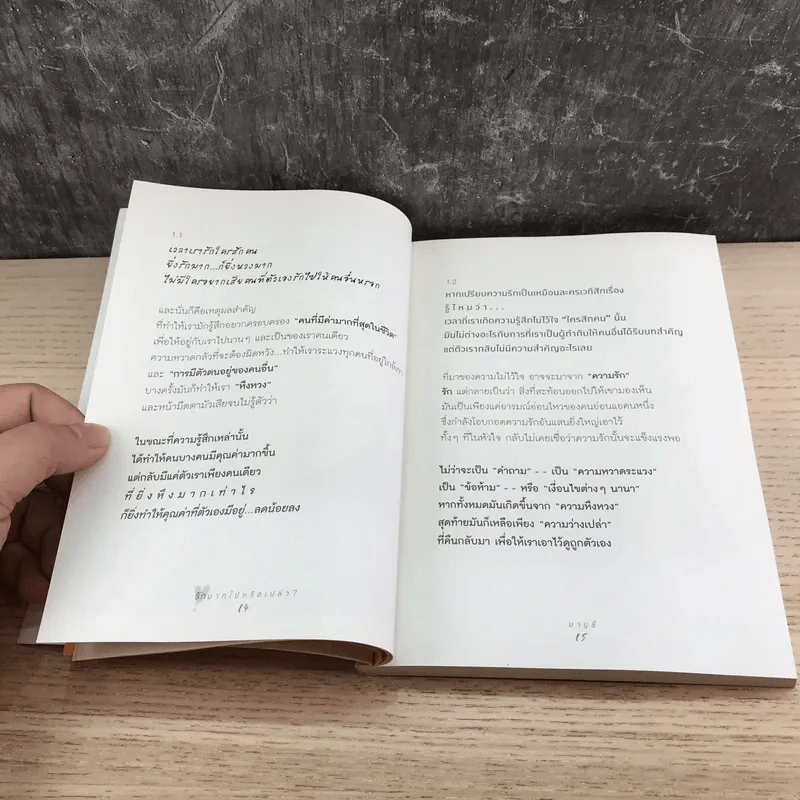 1.1
เวลาเรารักใครสักคน
ยิ่งรักมาก...ก็ยิ่งหวงมาก
ไม่มีใครอยากเสียคนที่ตัวเองรักไปให้คนอื่นหรอก
และนั่นก็คือเหตุผลสำคัญ
ที่ทำให้เรามักรู้สึกอยากครอบครอง "คนที่มีค่ามากที่สุดในชีวิต"
เพื่อให้อยู่กับเราไปนานๆ และเป็นของเราคนเดียว
ความหวาดกลัวที่จะต้องผิดหวัง...ทำให้เราระแวงทุกคนที่อยู่ใกล้เขา
และ "การมีตัวตนอยู่ของคนอื่น"
บางครั้งมันก็ทำให้เรา "หึงหวง"
และหน้ามืดตามัวเสียจนไม่รู้ตัวว่า
ในขณะที่ความรู้สึกเหล่านั้น
ได้ทำให้คนบางคนมีคุณค่ามากขึ้น
แต่กลับมีแค่ตัวเราเพียงคนเดียว
ที่ ยิ่ ง หึ ง ม า ก เ ท่ า ไ ร
ก็ยิ่งทำให้คุณค่าที่ตัวเองมีอยู่...ลดน้อยลง
รักมากไปหรือเปล่า?
14
1.2
หากเปรียบความรักเป็นเหมือนละครเวทีสักเรื่อง
รู้ ไ ห ม ว่ า . . .
เวลาที่เราเกิดความรู้สึกไม่ไว้ใจ "ใครสักคน" นั้น
มันไม่ต่างอะไรกับการที่เราเป็นผู้กำกับให้คนอื่นได้รับบทสำคัญ
แต่ตัวเรากลับไม่มีความสำคัญอะไรเลย
ที่มาของความไม่ไว้ใจ อาจจะมาจาก "ความรัก"
รัก แต่กลายเป็นว่า สิ่งที่สะท้อนออกไปให้เขามองเห็น
มันเป็นเพียงแค่อารมณ์อ่อนไหวของคนอ่อนแอคนหนึ่ง
ซึ่งกำลังโอบกอดความรักอันแสนยิ่งใหญ่เอาไว้
ทั้งๆ ที่ในหัวใจ กลับไม่เคยเชื่อว่าความรักนั้นจะแข็งแรงพอ
ไม่ว่าจะเป็น "คำถาม" - - เป็น "ความหวาดระแวง"
เป็น "ข้อห้าม" - - หรือ "เงื่อนไขต่างๆ นานา"
หากทั้งหมดมันเกิดขึ้นจาก "ความหึงหวง"
สุดท้ายมันก็เหลือเพียง "ความว่างเปล่า"
ที่คืนกลับมา เพื่อให้เราเอาไว้ดูถูกตัวเอง
มาบุชี
15